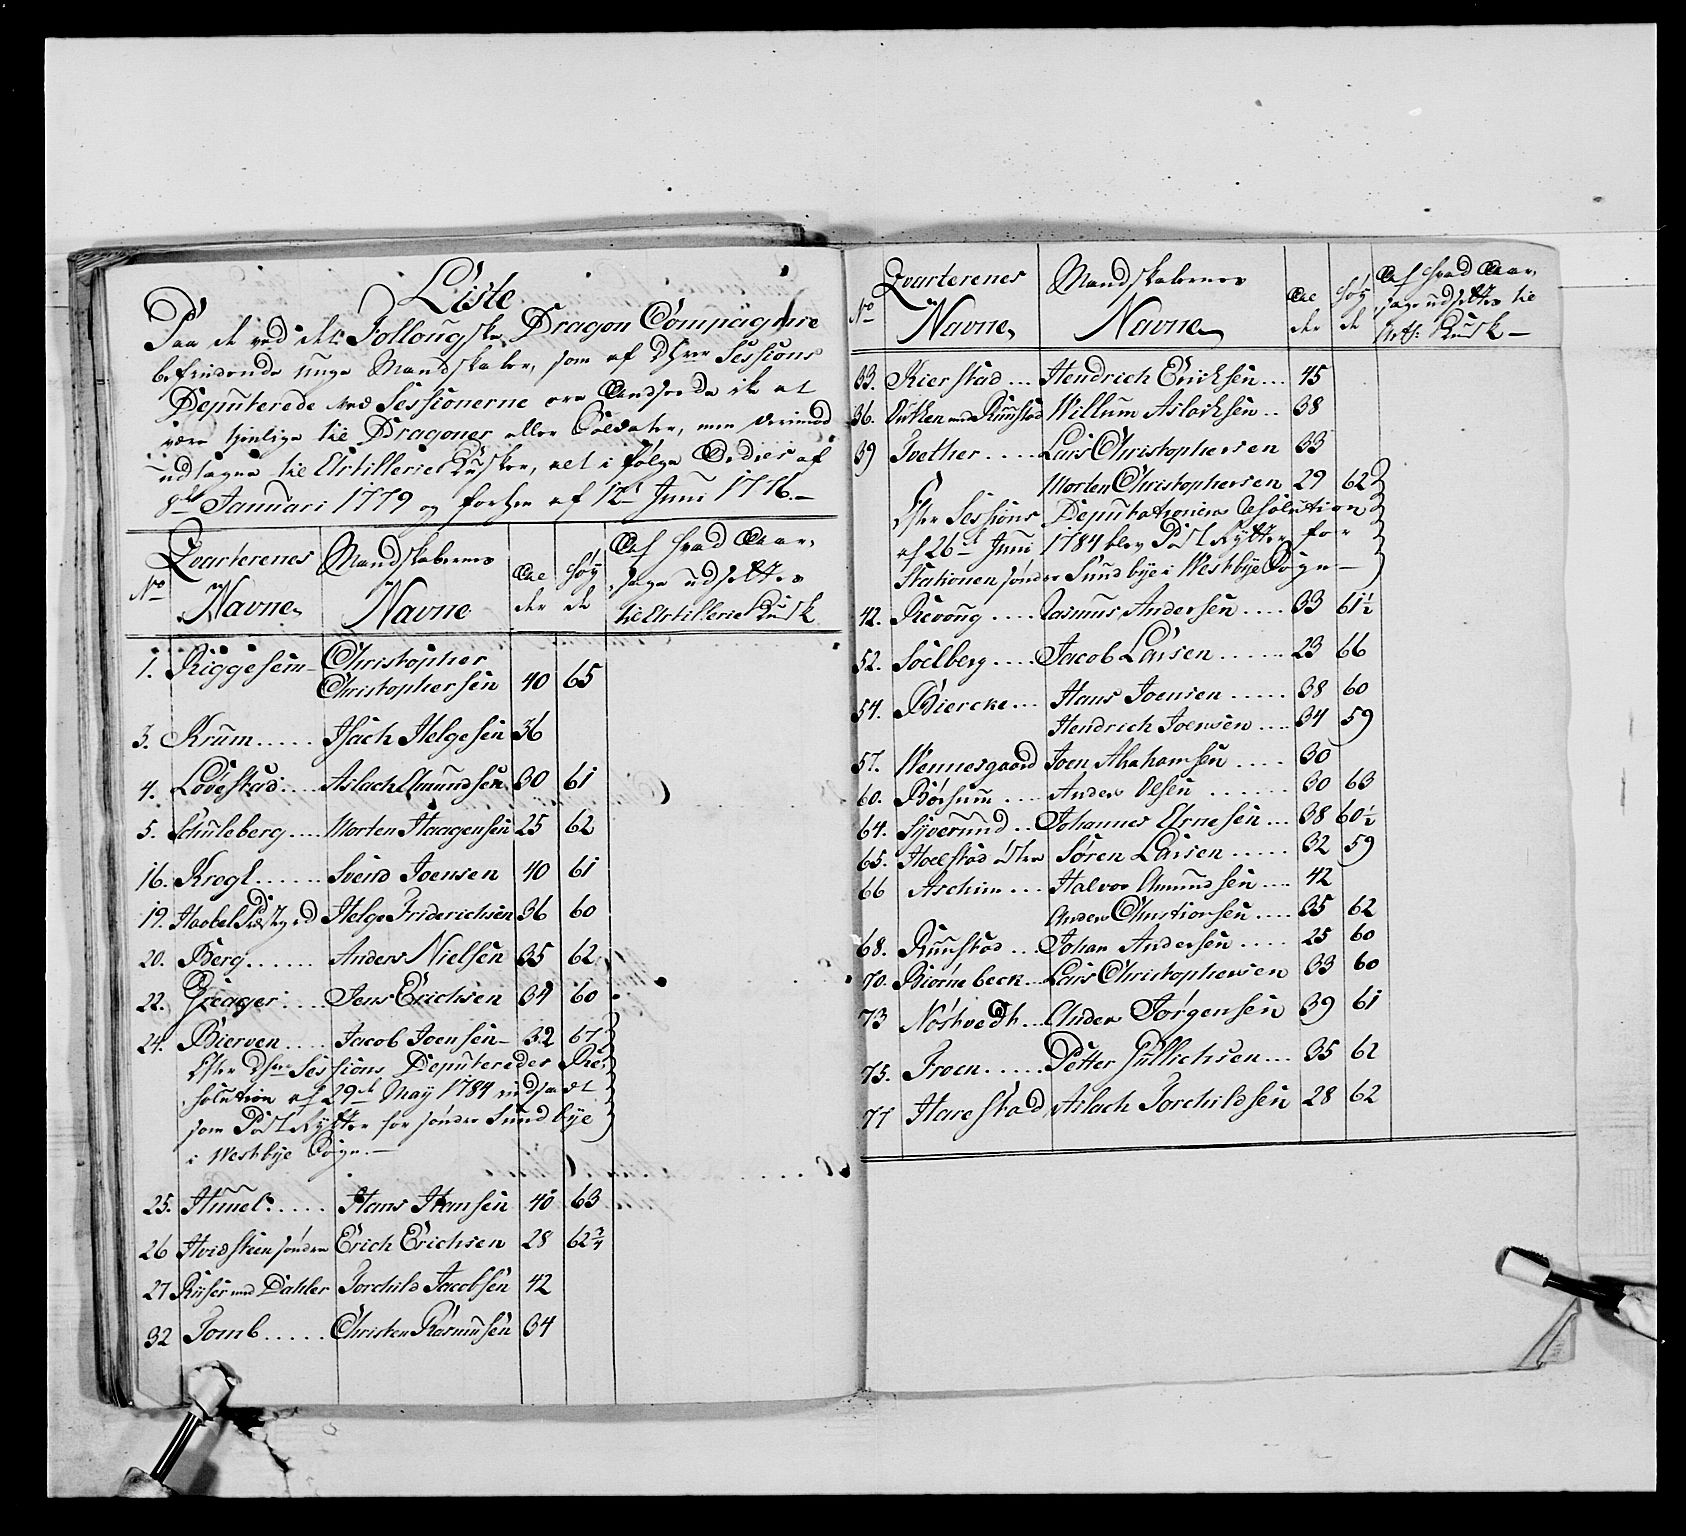 Liste
Paa de ved det Follougske Dragon Compagnie
befindende unge Mandskaber, som af Dhrr Sessions
Deputerede ved Sessionerne ere Andseede ik at
være tienlige til Dragoner eller Soldater, men derimod
udtagne til Artillerie Kudsker, alt i følge Ordres af
8de Januari 1779 og forhen af 12t Juni 1776.
No Qvarterenes Navne Mandskabernes Navne Alder Høyde Af hvad Aarsage udsettes til Artillerie Kusk
1. Riggesem Christopher
Christophersen 40 65
3. Krum Isach Helgesen 36
4. Lødestad Aslach Amundsen 30 61
5. Schuleberg Morten Haagensen 25 62
16. Krogh Svend Joensen 40 61
19. Haabel Præstegrd Helge Friderichsen 36 60
20. Berg Anders Nielsen 35 62
22. Grieager Jens Erichsen 34 60
24. Bierven Jacob Joensen 32 67
Efter Dhrr Sessions Deputeredes Re-
solution af 29de May 1784 indsadt
som Post Rytter for søndre Sundbye
i Westbye Sogn.
25. Huuel Hans Hansen 40 63
26 Hvidsteen søndre Erich Erichsen 28 62¾
27 Riiser med Dahler Torchild Jacobsen 42
32 Tomb Christen Rasmusen 34
No Qvarterenes Navne Mandskabernes Navne Alder Høyde Af hvad Aarsage udsettes til Art: Kusk
33. Kierstad Hendrich Ericksen 45
36. med Ruustad Willum Aslacksen 38
39 Tvether Lars Christophersen 33
Morten Christophersen 29 62
Efter Sessions Deputationens Resolution
af 26de Juni 1784 blev Post Rytter for
Stationen søndre Sundbye i Westbye Sogn
42. Revoug Rasmus Andersen 33 61½
52. Soelberg Jacob Larsen 23 66
54. Biercke Hans Joensen 38 60
Hendrich Joensen 34 59
57. Wennesgaard Joen Abrahamsen 30
60. Børsum Anders Olsen 30 63
64. Syverund Johannes Arnesen 38 60½
65. Hoelstad østre Søren Larsen 32 59
66 Aschim Halvor Amundsen 42
Anders Christiansen 35 62
68. Ruustad Johan Andersen 25 60
70. Biørnebeck Lars Christophersen 33 60
73 Nøstvedt Anders Jørgensen 39 61
75. Froen Petter Gullichsen 35 62
77 Harestad Aslach Torchildsen 28 62